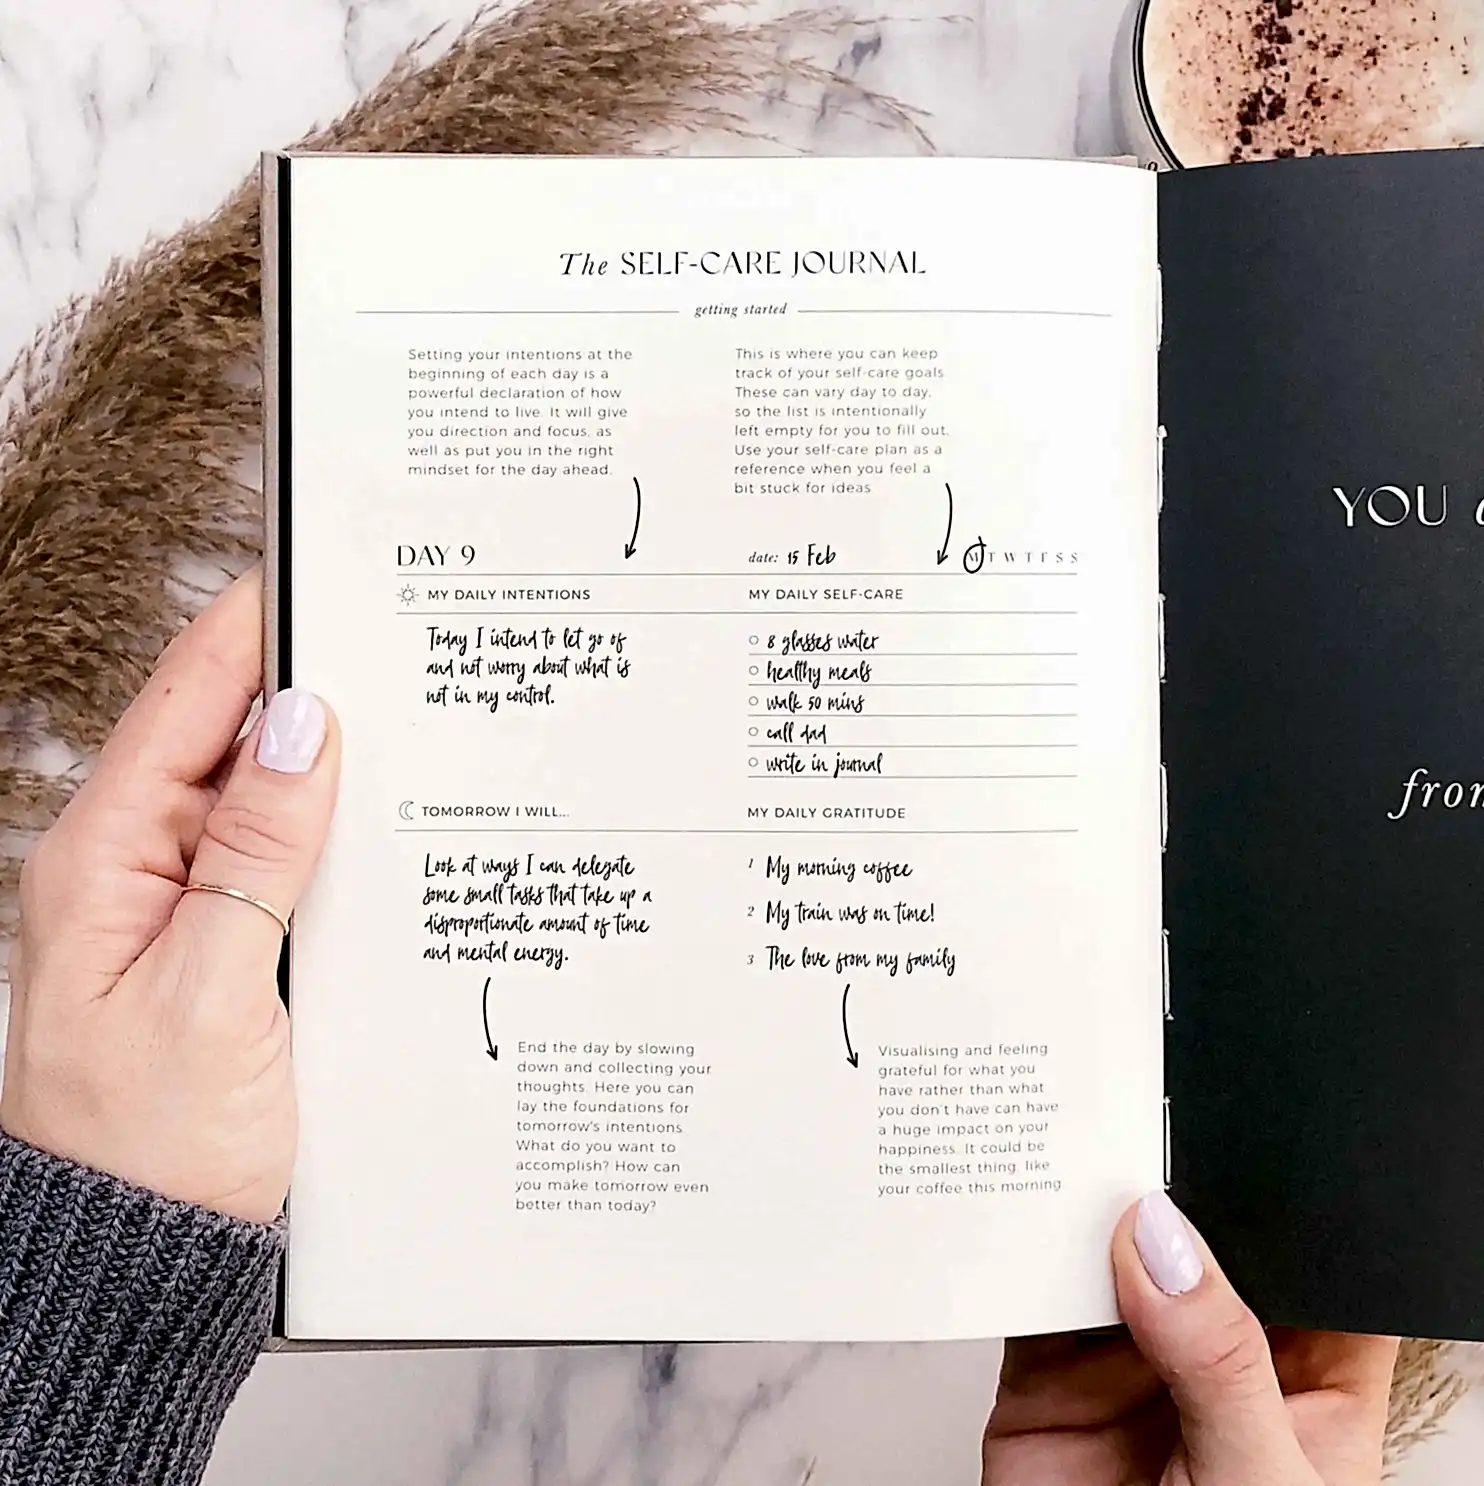 The SELF-CARE JOURNAL
getting started
Setting your intentions at the
beginning of each day is a
powerful declaration of how
you intend to live. It will give
you direction and focus, as
well as put you in the right
mindset for the day ahead.
This is where you can keep
track of your self-care goals
These can vary day to day,
so the list is intentionally
left empty for you to fill out.
Use your self-care plan as a
reference when you feel a
bit stuck for ideas
DAY 9
date: 15 Feb
M T W T F S S
MY DAILY INTENTIONS
Today I intend to let go of
and not worry about what is
not in my control.
MY DAILY SELF-CARE
8 glasses water
healthy meals
walk 50 mins
call dad
write in journal
TOMORROW I WILL...
Look at ways I can delegate
some small tasks that take up a
disproportionate amount of time
and mental energy.
MY DAILY GRATITUDE
1 My morning coffee
2 My train was on time!
3 The love from my family
End the day by slowing
down and collecting your
thoughts. Here you can
lay the foundations for
tomorrow's intentions
What do you want to
accomplish? How can
you make tomorrow even
better than today?
Visualising and feeling
grateful for what you
have rather than what
you don't have can have
a huge impact on your
happiness. It could be
the smallest thing, like
your coffee this morning
YOU